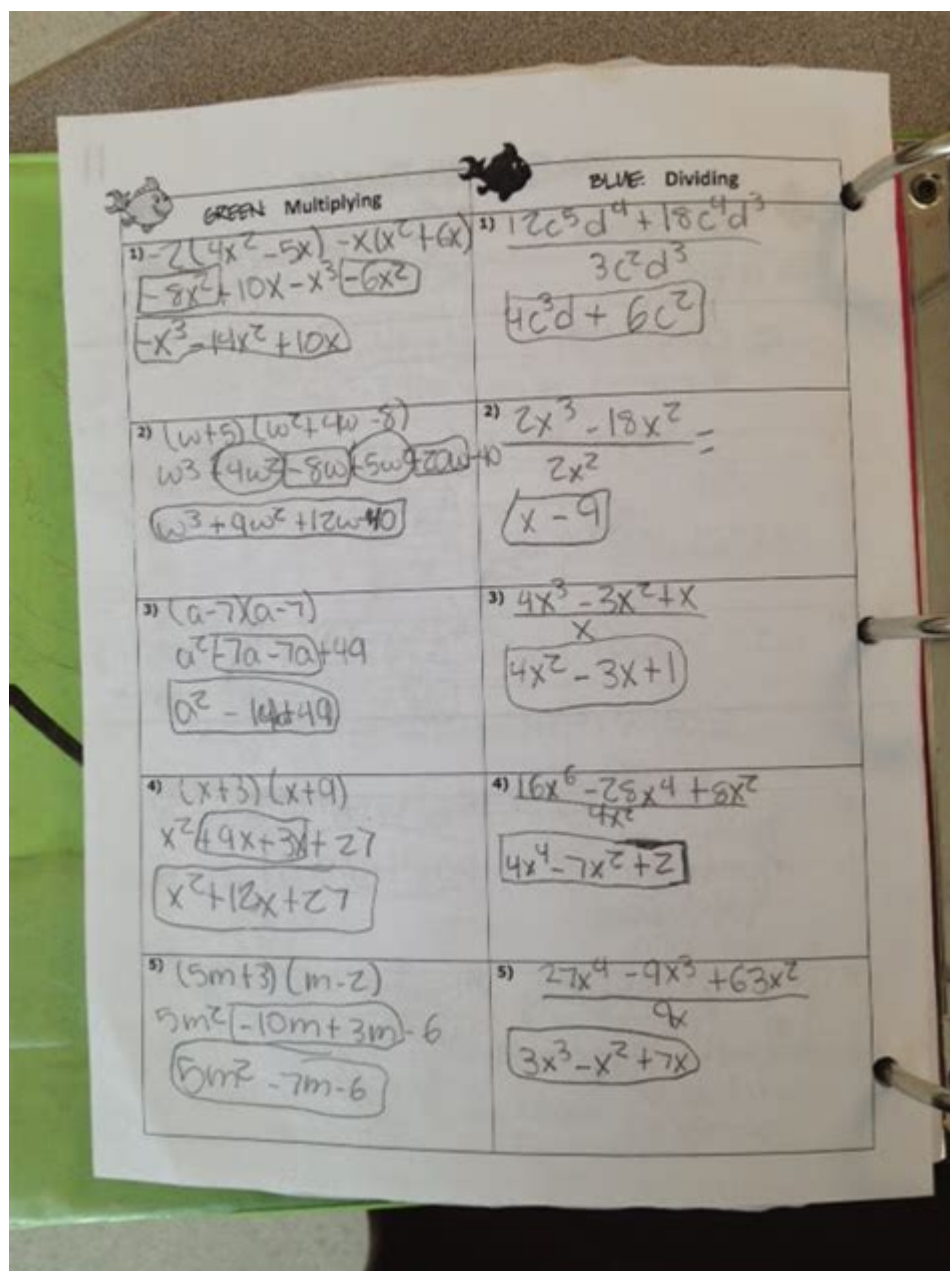 GREEN Multiplying
1) -2(4x² -5x) -x(x²+6x)
-8x²+10x-x³-6x²
-x³-14x²+10x
2) (w+5)(w²+4w-8)
w3 +4w²-8w+5w²+20w-40
w³+9w²+12w-40
3) (a-7)(a-7)
a²-7a-7a+49
a² - 14a+49
4) (x+3)(x+9)
x²+9x+3x+27
x²+12x+27
5) (5m+3)(m-2)
5m²-10m+3m-6
5m² -7m-6
BLUE: Dividing
1) 12c⁵d⁴+18c⁴d³
3c²d³
4c³d+ 6c²
2) 2x³-18x² =
2x²
x-9
3) 4x³-3x²+x
x
4x²-3x+1
4) 16x⁶-28x⁴+8x²
4x²
4x⁴-7x²+2
5) 27x⁴-9x³+63x²
9x
3x³-x²+7x